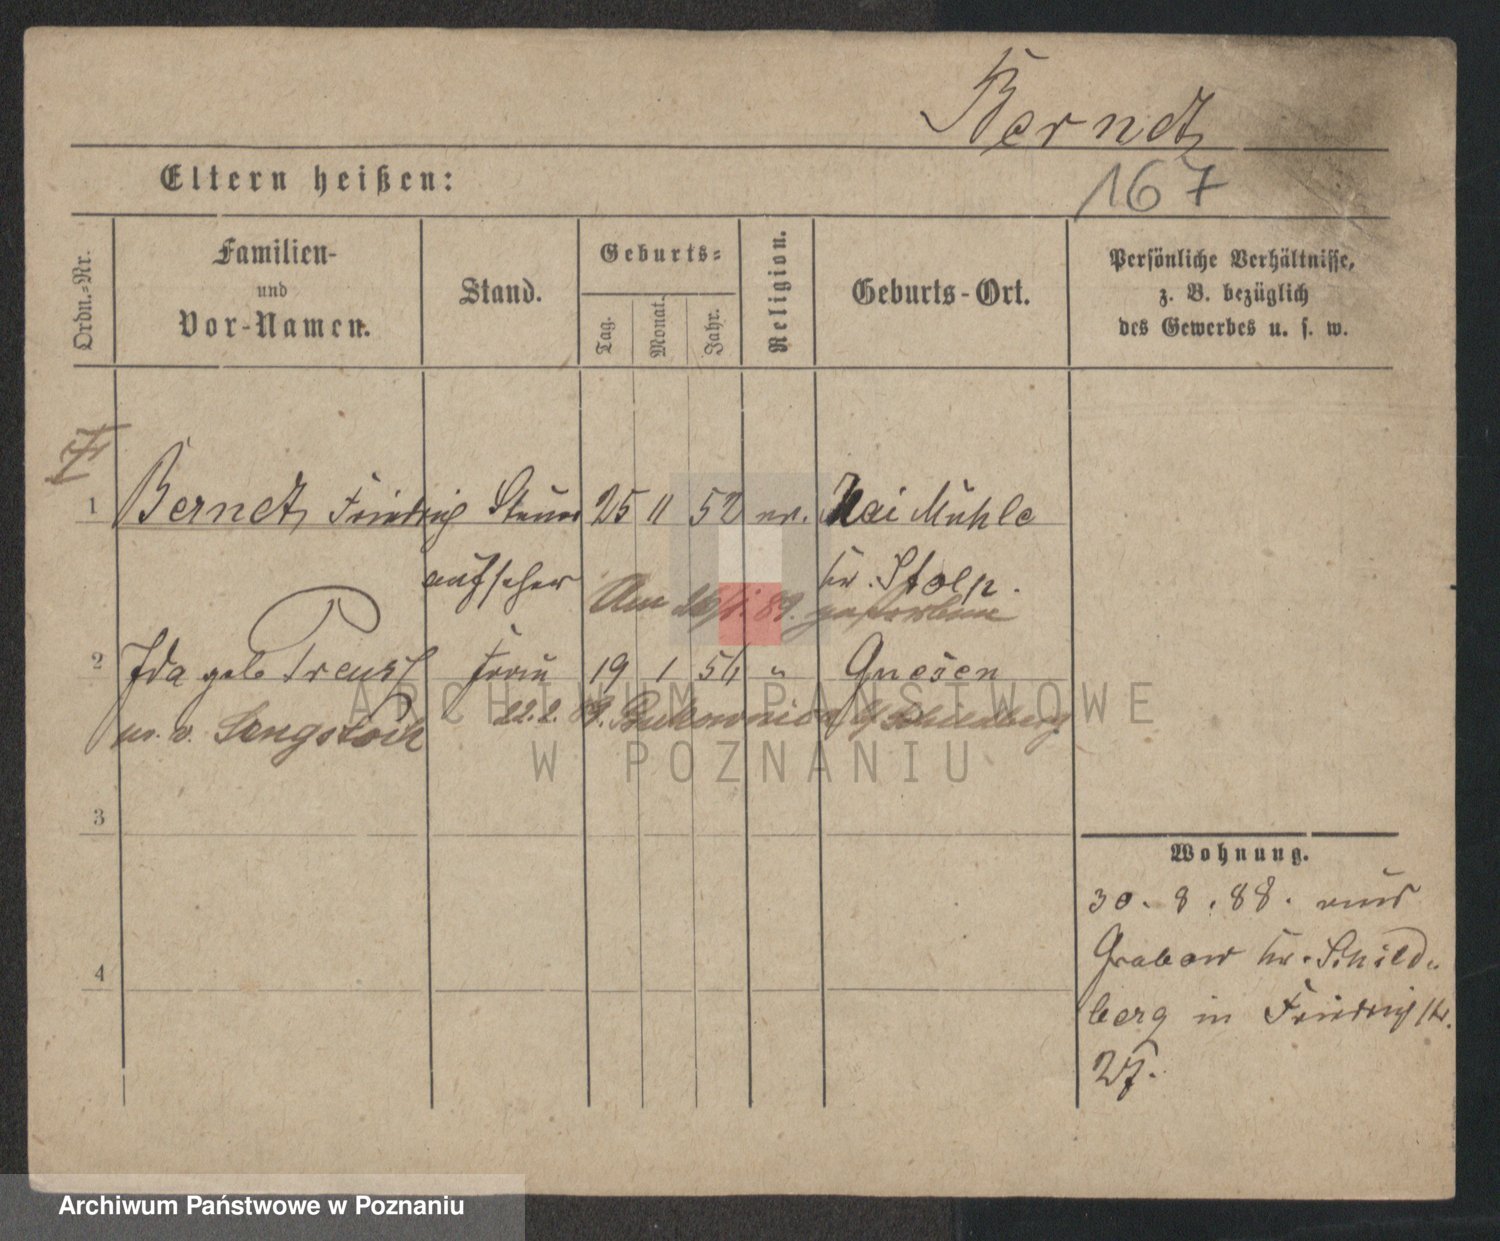 Berndt
167
Eltern heißen:
Ordn.-Nr.
Familien-
und
Vor-Namen.
Stand.
Geburts-
Tag.
Monat.
Jahr.
Religion.
Geburts-Ort.
Persönliche Verhältnisse,
z. B. bezüglich
des Gewerbes u. s. w.
1 Berndt, Friedrich Steuer 25 11 52 ev. Mühle
aufseher Kr. Stolp.
Am 89. gestorben
2 Ida geb. Preuss Frau 19 1 54 " Gnesen
22.2. 89. Schildberg
ARCHIWUM PAŃSTWOWE
W POZNANIU
3
4
Wohnung.
30. 8. 88. aus
Grabow Kr. Schild-
berg in Friedrichstr.
27.
Archiwum Państwowe w Poznaniu